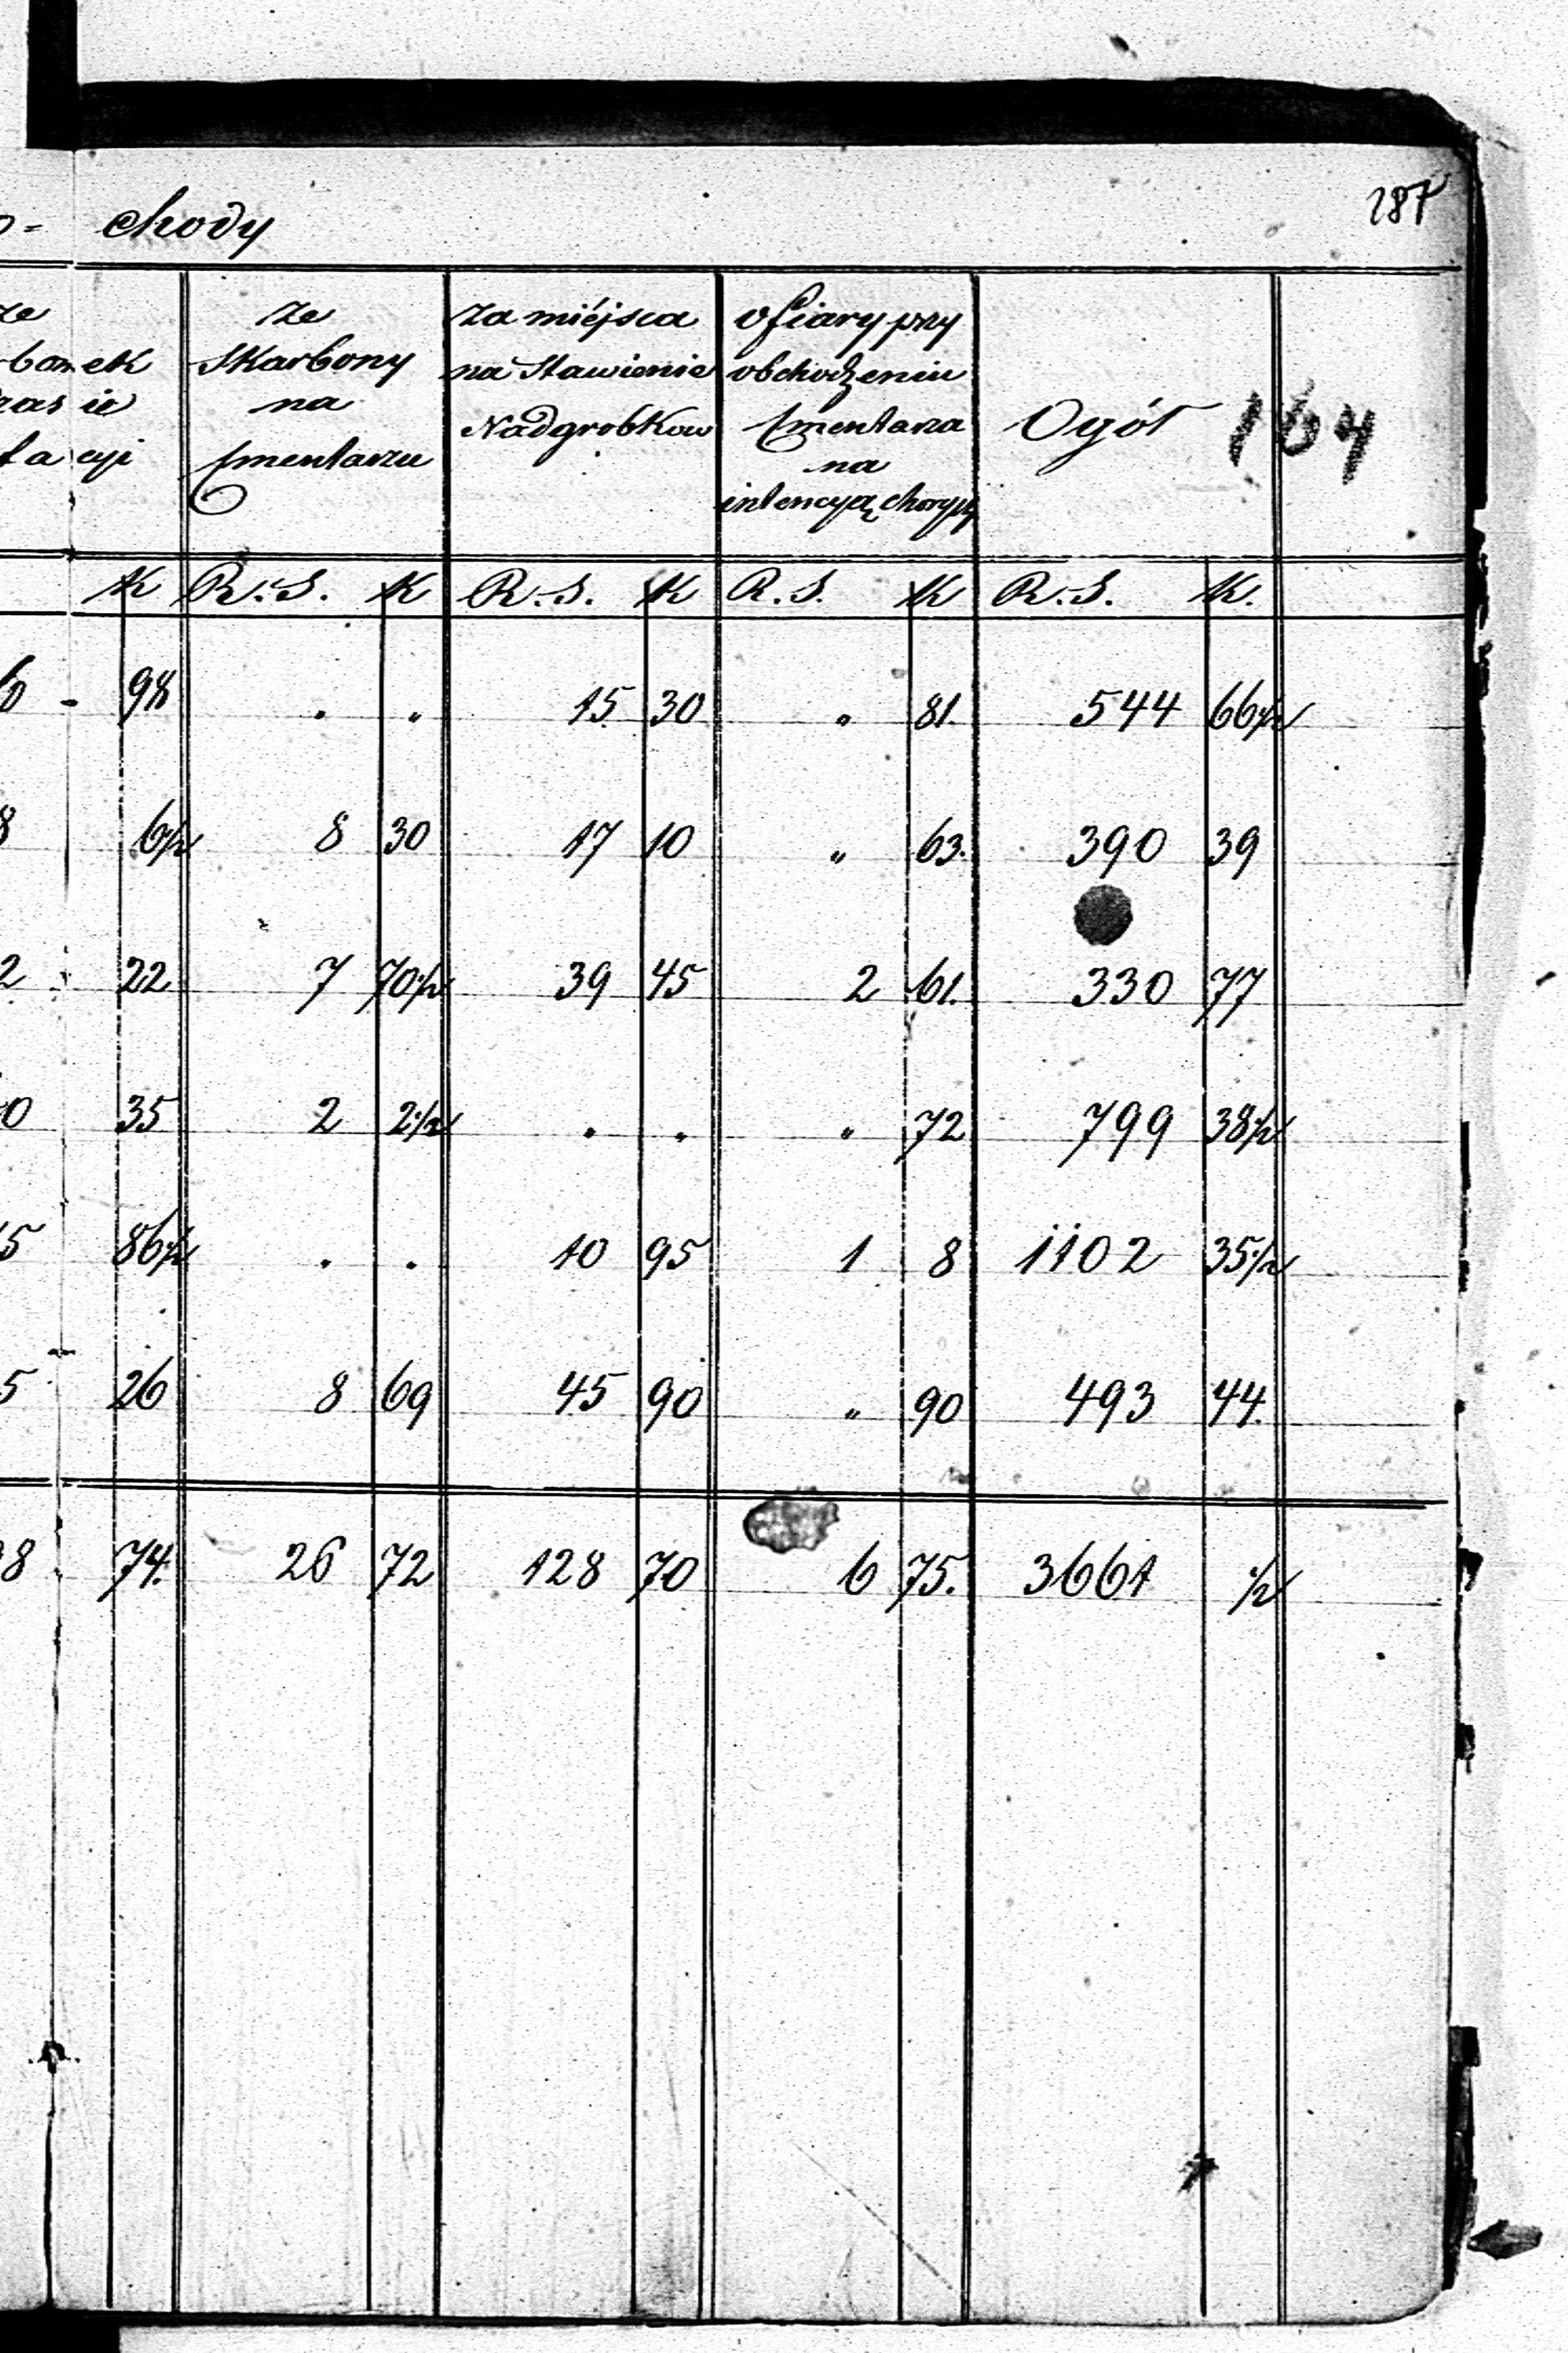 187
chody
164
ze Skarbony na Cmentarzu
za miéjsca na Stawienie Nadgrobkow
ofiary przy obchodzeniu Cmentarza na intencyą chorych
Ogół
K R.S. K R.S. K R.S. K R.S. K.
98 . . 15 30 " 81. 544 66½
8 6½ 8 30 17 10 " 63. 390 39
2 22 7 70½ 39 45 2 61. 330 77
0 35 2 2½ . . " 72 799 38½
5 86½ . . 10 95 1 8 1102 35½
5 26 8 69 45 90 " 90 493 44.
8 74. 26 72 128 70 6 75. 3661 ½